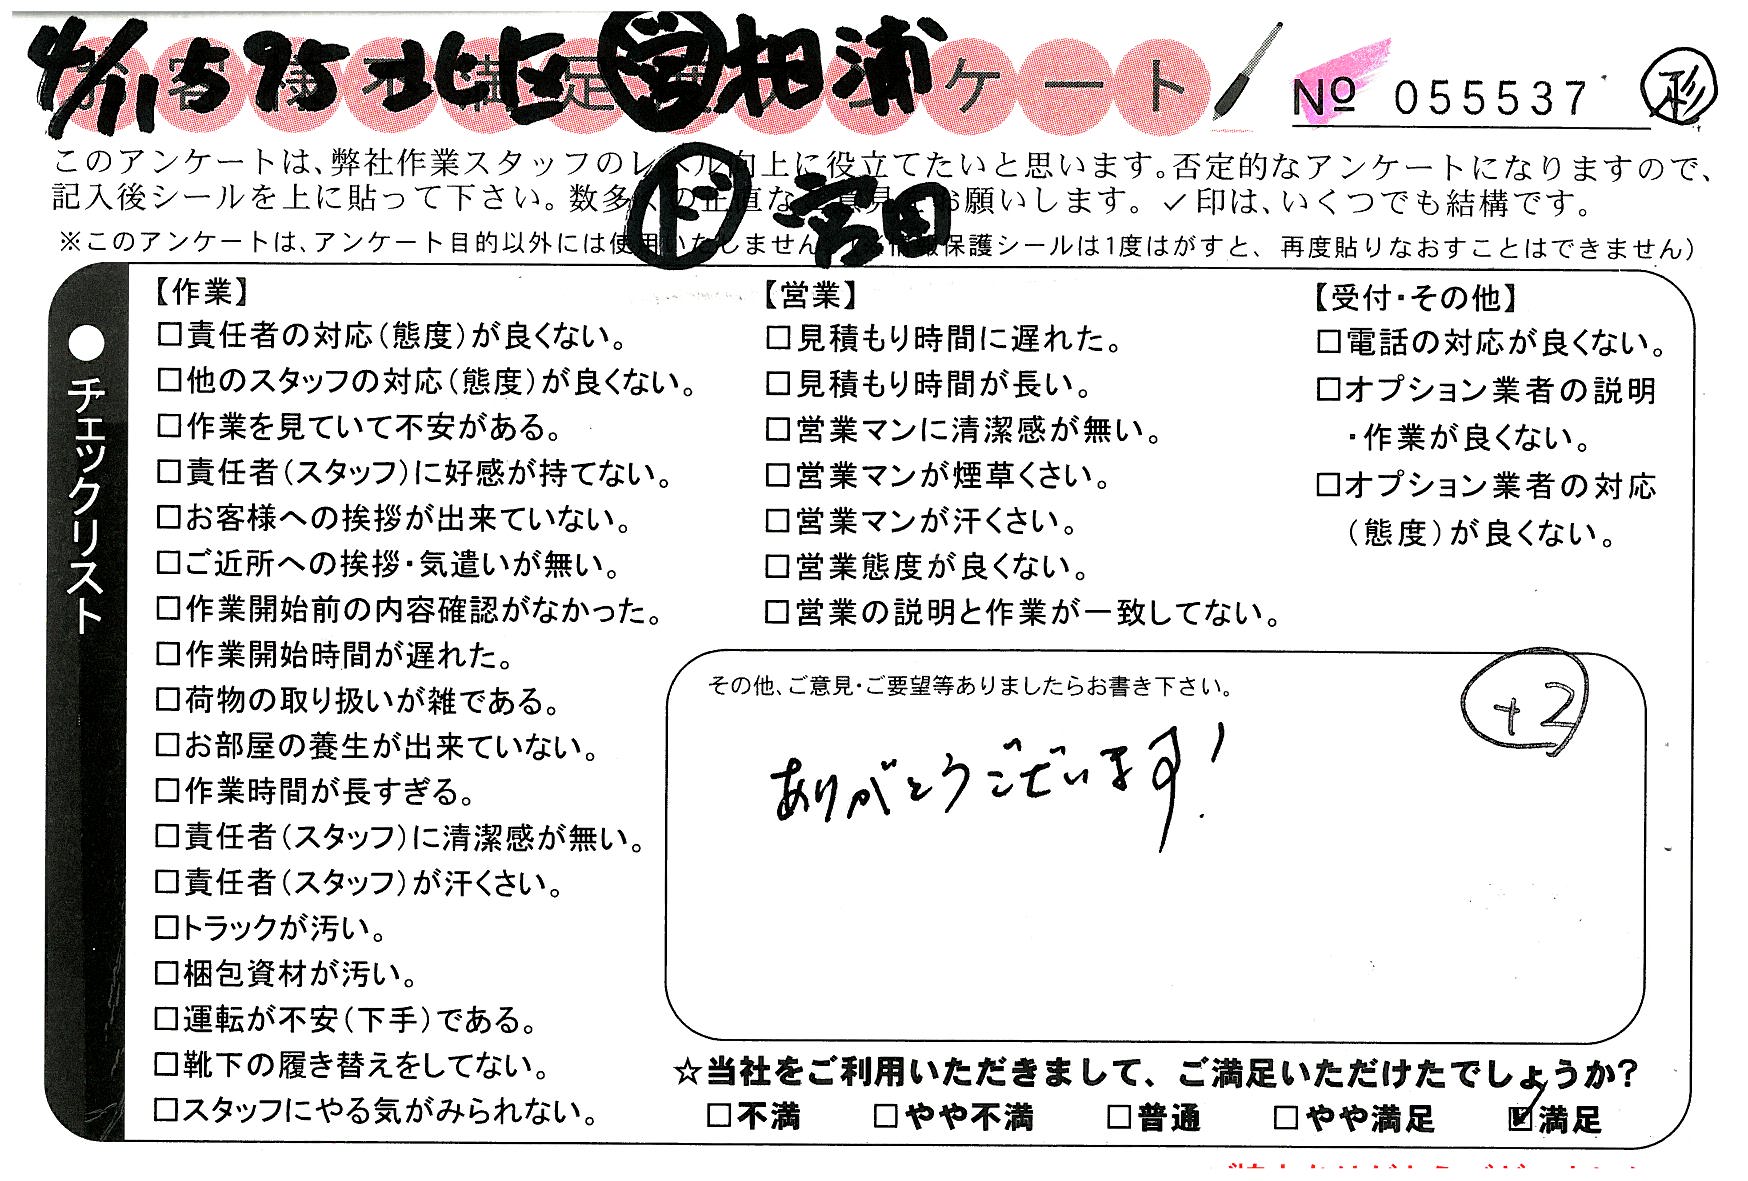 4/11 595 北区 営 相浦
ケート
№ 055537
ド 宮田
このアンケートは、弊社作業スタッフのレベル向上に役立てたいと思います。否定的なアンケートになりますので、
記入後シールを上に貼って下さい。数多くの正直な 意見 お願いします。✓印は、いくつでも結構です。
※このアンケートは、アンケート目的以外には使用いたしません 保護シールは1度はがすと、再度貼りなおすことはできません)
●チェックリスト
【作業】
□責任者の対応(態度)が良くない。
□他のスタッフの対応(態度)が良くない。
□作業を見ていて不安がある。
□責任者(スタッフ)に好感が持てない。
□お客様への挨拶が出来ていない。
□ご近所への挨拶・気遣いが無い。
□作業開始前の内容確認がなかった。
□作業開始時間が遅れた。
□荷物の取り扱いが雑である。
□お部屋の養生が出来ていない。
□作業時間が長すぎる。
□責任者(スタッフ)に清潔感が無い。
□責任者(スタッフ)が汗くさい。
□トラックが汚い。
□梱包資材が汚い。
□運転が不安(下手)である。
□靴下の履き替えをしてない。
□スタッフにやる気がみられない。
【営業】
□見積もり時間に遅れた。
□見積もり時間が長い。
□営業マンに清潔感が無い。
□営業マンが煙草くさい。
□営業マンが汗くさい。
□営業態度が良くない。
□営業の説明と作業が一致してない。
【受付・その他】
□電話の対応が良くない。
□オプション業者の説明
・作業が良くない。
□オプション業者の対応
(態度)が良くない。
その他、ご意見・ご要望等ありましたらお書き下さい。
+2
ありがとうございます!
☆当社をご利用いただきまして、ご満足いただけたでしょうか?
□不満 □やや不満 □普通 □やや満足 ☑満足